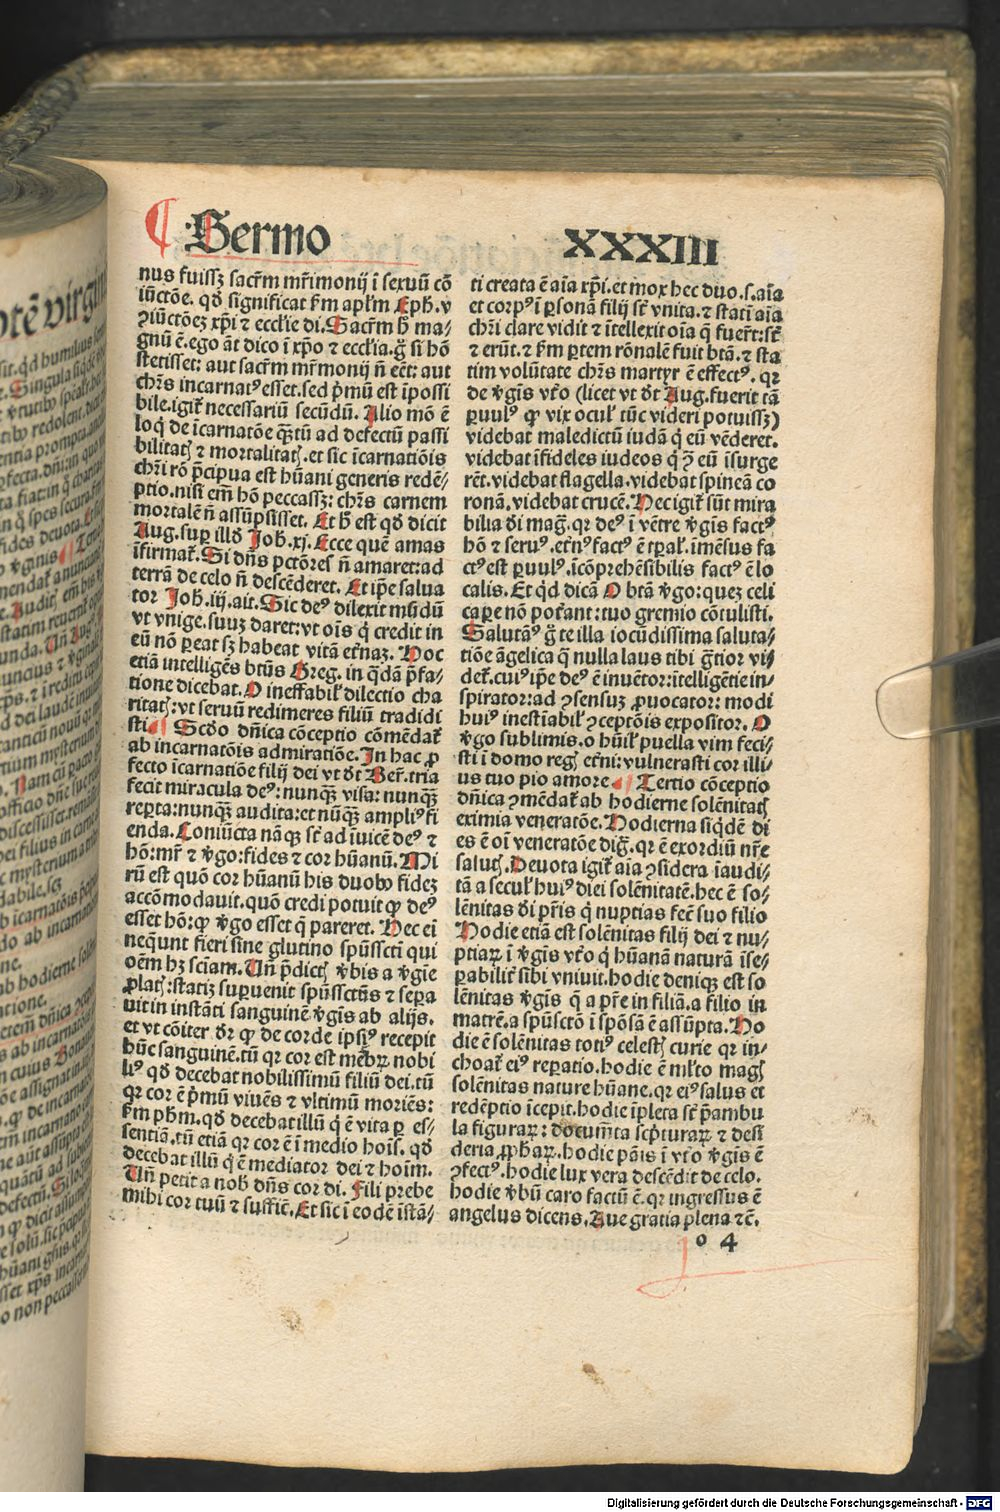 Sermo XXXIII
nus fuissꝫ sacr̃m mr̃imonij ĩ sexuū cō
iũctõe. qđ significat ẜm apl̃m Eph. v
ꝯiũctõeꝫ xp̃i ⁊ eccl̃ie di. Sacr̃m h̃ ma⸗
gnũ ẽ. ego ãt dico ĩ xp̃o ⁊ eccl̃ia. g̃ si hõ
stetisset: aut sacr̃m mr̃imonij ñ eẽt: aut
chr̃s incarnatꝰ esset. sed p̃mũ est ĩpossi
bile. igit̃ necessariũ secũdũ. Alio mõ ẽ
loq̃ de ĩcarnatõe qꝫtũ ad defectũ passi
bilitatꝭ ⁊ mortalitatꝭ. et sic ĩcarnatiõis
chr̃i rõ p̃cipua est hũani generis redẽ⸗
ptio. nisi em̃ hõ peccassꝫ: chr̃s carnem
mortalẽ ñ assũpsisset. Et h̃ est qđ dicit
Aug. suꝑ illđ Joh. xj. Ecce quẽ amas
ĩfirmat̃. Si dñs pctõres ñ amaret: ad
terrã de celo ñ descẽderet. Et ip̃e salua
tor Joh. iij. ait. Sic deꝰ dilexit mũdũ
vt vnige. suuꝫ daret: vt oĩs q̃ credit in
eũ nõ ꝑeat sꝫ habeat vitã et̃naꝫ. Hoc
etiã intelligẽs btũs Greg. in q̃dã p̃fa⸗
tione dicebat. O ineffabil̃ dilectio cha
ritatꝭ: vt seruũ redimeres filiũ tradidi
sti ¶ Scđo dñica cõceptio cõmẽdat̃
ab incarnatõis admiratiõe. In hac ꝑ
fecto ĩcarnatiõe filij dei vt đt Ber̃. tria
fecit miracula deꝰ: nunqꝫ visa: nunqꝫ
reꝑta: nunqꝫ audita: et nũqꝫ ampliꝰ fi
enda. Coniũcta nãqꝫ st̃ ad ĩuicẽ deꝰ ⁊
hõ: mr̃ ⁊ v̾go: fides ⁊ cor hũanũ. Mi
rũ est quõ cor hũanũ his duobꝰ fideꝫ
accõmodauit. quõ credi potuit ꝙ deꝰ
esset hõ: ꝙ v̾go esset q̃ pareret. Hec ei
neq̃unt fieri sine glutino spũssct̃i qui
oẽm hꝫ sciam̃. Uñ p̃dictꝭ v̾bis a v̾gĩe
ꝓlatꝭ: statiꝫ supuenit spũssct̃us ⁊ sepa
uit in instãti sanguinẽ v̾gĩs ab alijs.
et vt cõiter đr ꝙ de corde ipsiꝰ recepit
hũc sanguinẽ. tũ qꝛ cor est mẽbꝛ nobi
liꝰ qđ decebat nobilissimũ filiũ dei. tũ
qꝛ cor ẽ p̃mũ viuẽs ⁊ vltimũ moriẽs:
ẜm ph̃m. qđ decebat illũ q̃ ẽ vita ꝑ es⸗
sentiã. tũ etiã qꝛ cor ẽ ĩ medio hoĩs. qđ
decebat illũ q̃ ẽ mediator dei ⁊ hoĩm.
Uñ petit a nob̃ dñs cor di. Fili prebe
mihi cor tuũ ⁊ suffic̃. Et sic ĩ eodẽ ĩstã⸗
ti creata ẽ aĩa xp̃i. et mox hec duo. s. aĩa
et corpꝰ ĩ ꝑsonã filij st̃ vnita. ⁊ stati aĩa
chr̃i clare vidit ⁊ ĩtellexit oĩa q̃ fuer̃t: st̃
⁊ erũt. ⁊ ẜm ꝑtem rõnalẽ fuit btã. ⁊ sta
tim volũtate chr̃s martyr ẽ effectꝰ. qꝛ
de v̾gĩs vt̃o (licet vt đt Aug. fuerit tã
ꝑuulꝰ ꝙ vix ocul̃ tũc videri potuissꝫ)
videbat maledictũ iudã q̃ eũ vẽderet.
videbat ĩfideles iudeos q̃ ꝯ̃ eũ ĩsurge
rẽt. videbat flagella. videbat spineã co
ronã. videbat crucẽ. Hec igit̃ sũt mira
bilia đi mag̃. qꝛ deꝰ ĩ vẽtre v̾gĩs factꝰ
hõ ⁊ seruꝰ. et̃nꝰ factꝰ ẽ tꝑal̃. ĩmẽsus fa
ctꝰ est ꝑuulꝰ. ĩcõprehẽsibilis factꝰ ẽ lo
calis. Et q̃d dicã O btã v̾go: queꝫ celi
capere nõ pot̃ant: tuo gremio cõtulisti.
Salutãꝰ g̃ te illa iocũdissima saluta⸗
tiõe ãgelica q̃ nulla laus tibi g̃tior vi⸗
det̃. cuiꝰ ip̃e deꝰ ẽ inuẽtor: ĩtelligẽtie in⸗
spirator: ad ꝯsensuꝫ ꝓuocator: modi
huiꝰ inestĩabil̃ ꝯceptõis expositor. O
v̾go sublimis. o hũil̃ puella vim feci⸗
sti ĩ domo regꝭ et̃ni: vulnerasti cor illi⸗
us tuo pio amore ¶ Tertio cõceptio
dñica ꝯmẽdat̃ ab hodierne solẽnitatꝭ
eximia veneratõe. Hodierna siq̃dẽ di
es ẽ oĩ veneratõe dig̃. qꝛ ẽ exordiũ nr̃e
salutꝭ. Deuota igit̃ aĩa ꝯsidera ĩaudi⸗
tã a secul̃ huiꝰ diei solẽnitatẽ. hec ẽ so⸗
lẽnitas đi pr̃is q̃ nuptias fec̃ suo filio
Hodie etiã est solẽnitas filij dei ⁊ nu⸗
ptiaꝝ ĩ v̾gĩs vt̃o q̃ hũanã naturã ĩse⸗
ꝑabilit̃ sibi vniuit. hodie deniqꝫ est so
lẽnitas v̾gĩs q̃ a pr̃e in filiã. a filio in
matrẽ. a spũsctõ ĩ spõsã ẽ assũpta. Ho
die ẽ solẽnitas totiꝰ celestꝭ curie qꝛ in⸗
choat̃ eiꝰ reꝑatio. hodie ẽ ml̃to magꝭ
solẽnitas nature hũane. qꝛ eiꝰ salus et
redẽptio ĩcepit. hodie ĩpleta st̃ p̃ambu
la figuraꝝ: documẽta scp̃turaꝝ ⁊ desi
deria ꝓph̃aꝝ. hodie panis ĩ vt̃o v̾gĩs ẽ
ꝯfectꝰ. hodie lux vera descẽdit de celo.
hodie v̾bũ caro factũ ẽ. qꝛ ingressus ẽ
angelus dicens. Aue gratia plena ⁊c̃.
o 4
Digitalisierung gefördert durch die Deutsche Forschungsgemeinschaft - DFG